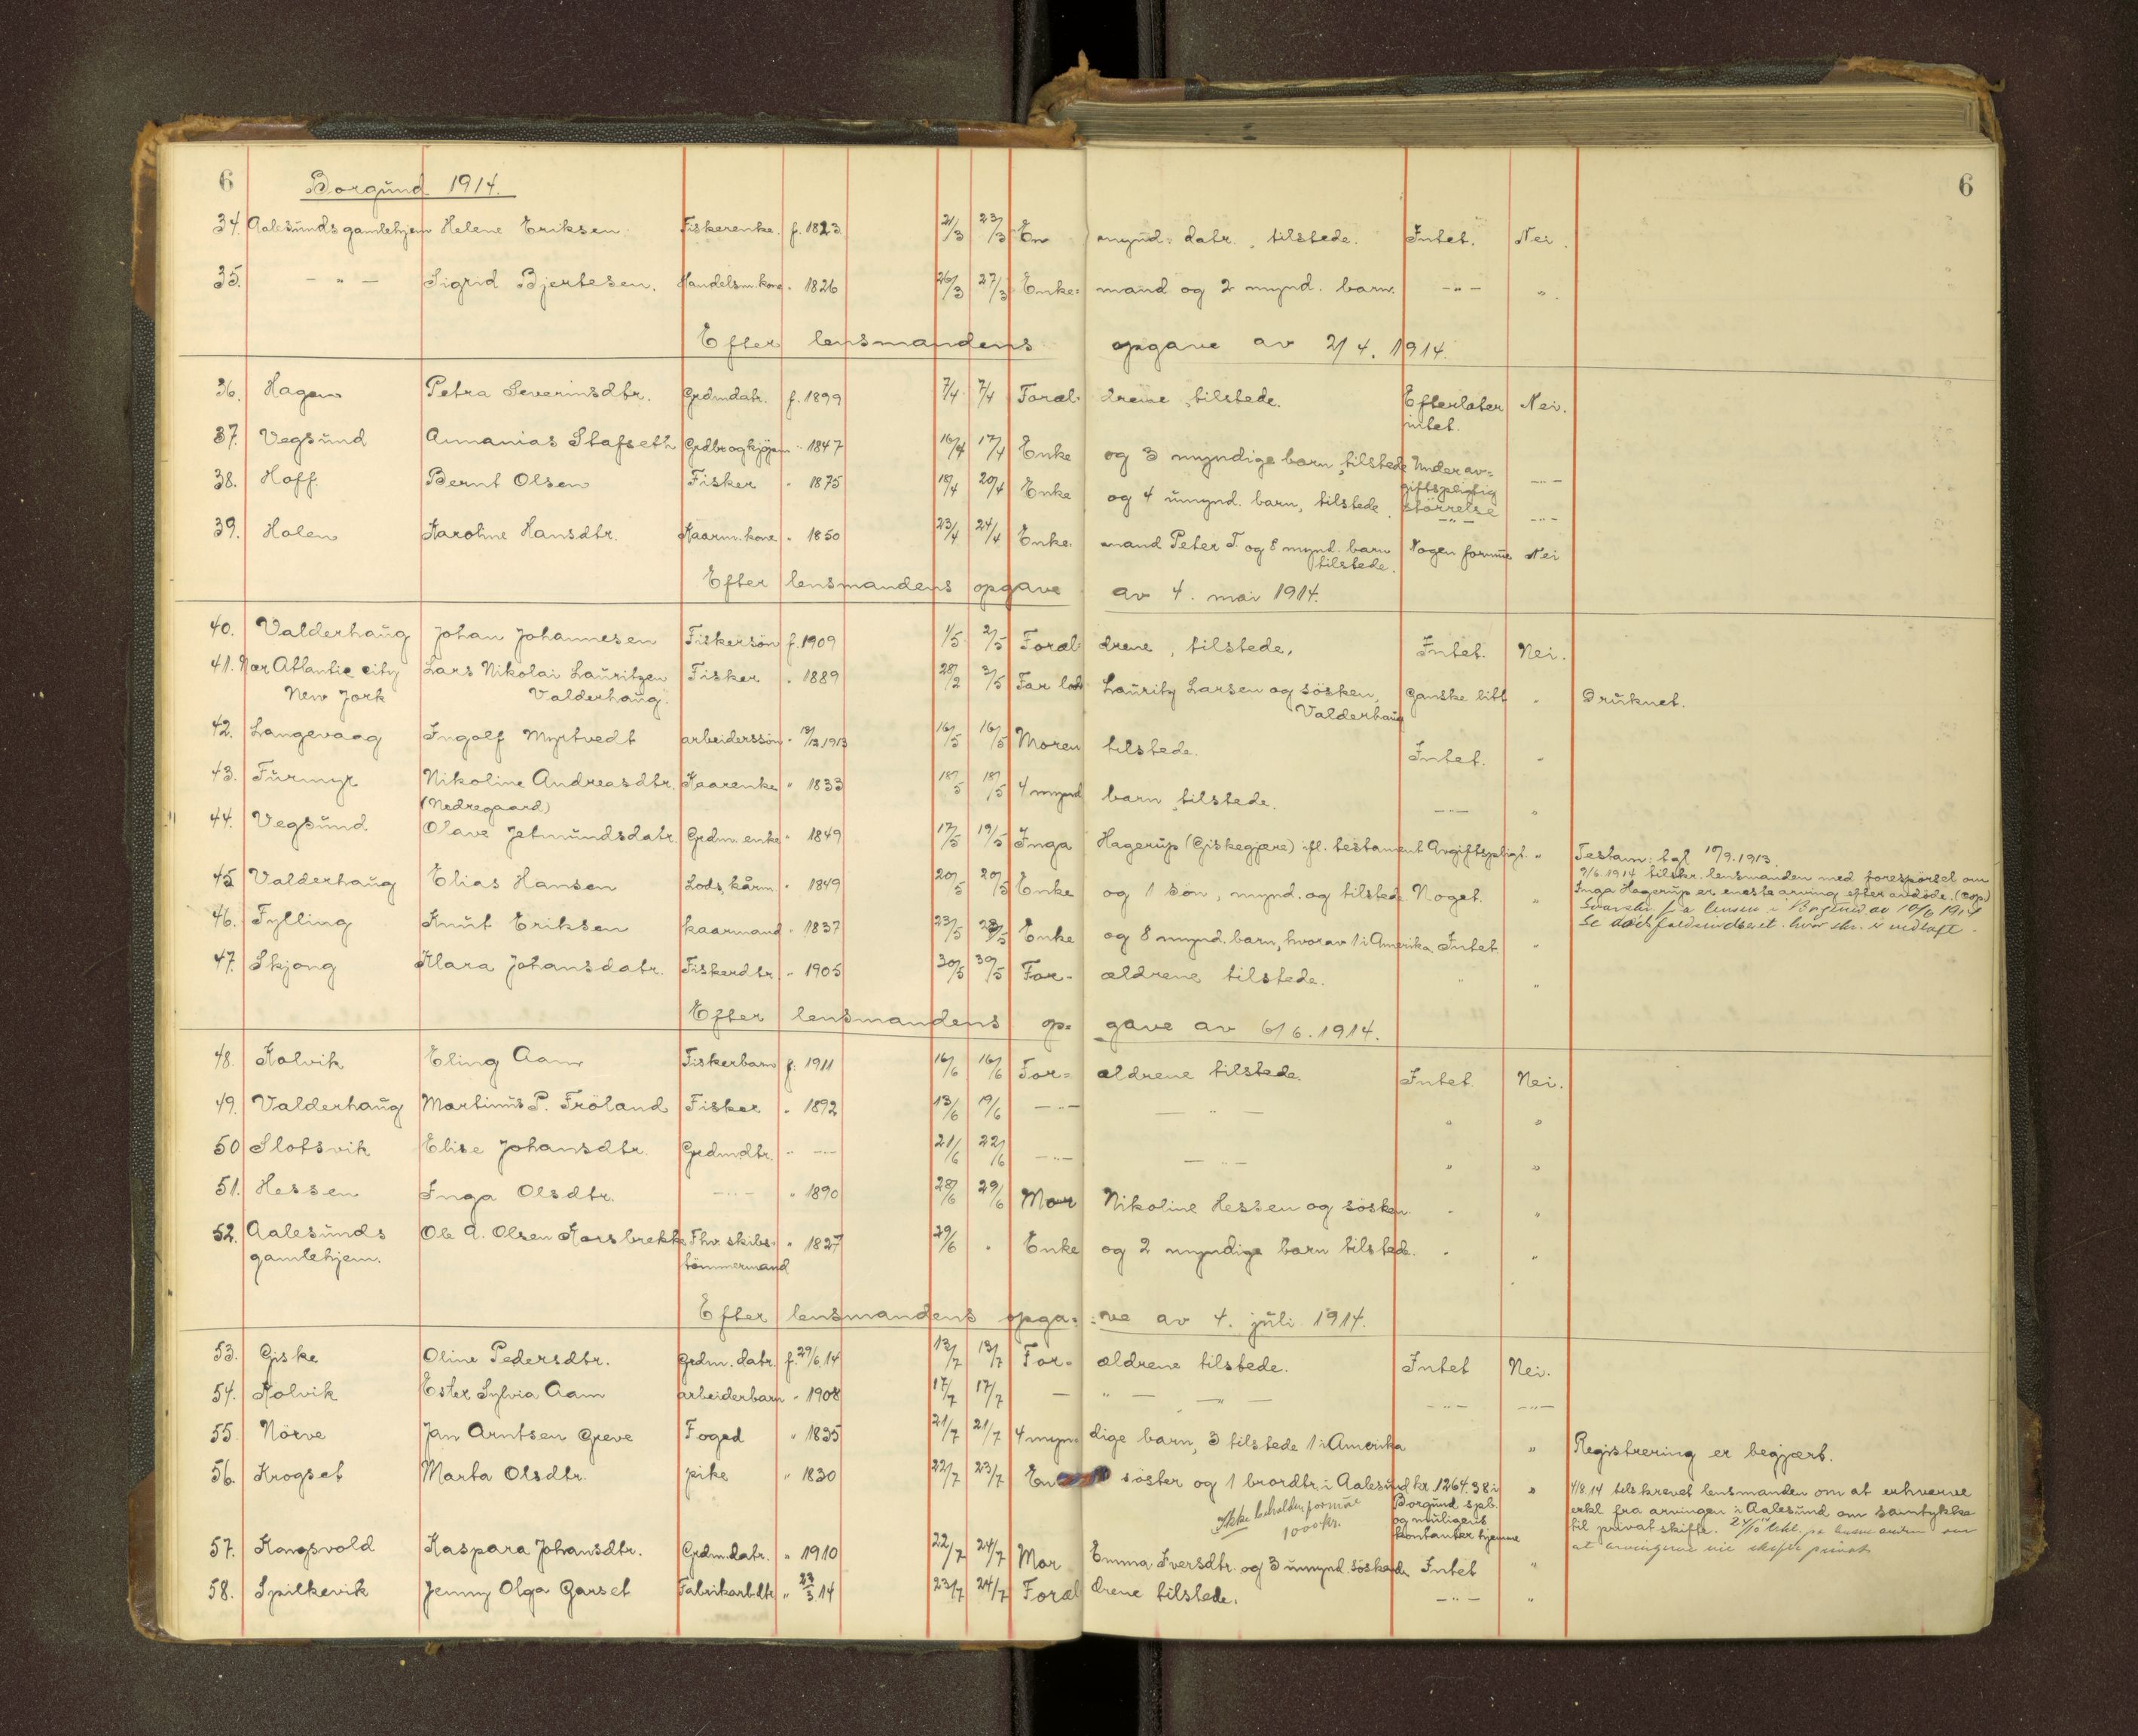 6 Borgund 1914. 6
34. Aalesunds gamlehjem Helene Eriksen. Fiskerenke. f. 1823 21/3 23/3 En mynd. datr., tilstede. Intet. Nei.
35. - " - Sigrid Bjertesen. Handelsm. kone " 1826 26/3 27/3 Enke= mand og 2 mynd. barn. - " - ".
Efter lensmandens opgave av 2/4. 1914.
36. Hagen Petra Severinsdtr. Grdmdatr. f. 1899 7/4 7/4 Foræl- drene, tilstede. Efterlater Nei.
intet.
37. Vegsund Annanias Stafseth Grdbr og kjøpm " 1847 16/4 17/4 Enke og 3 myndige barn, tilstede Under av=
giftspligtig - " -
størrelse
38. Hoff. Bernt Olsen Fisker " 1875 18/4 20/4 Enke og 4 umynd. barn, tilstede. - " - - " -
39. Holen Karoline Hansdtr. Kaarm. kone " 1850 23/4 24/4 Enke. mand Peter T. og 8 mynd. barn Nogen formue Nei
tilstede.
Efter lensmandens opgave av 4. mai 1914.
40. Valderhaug Johan Johannesen Fiskersøn f. 1909 1/5 2/5 Foræl drene, tilstede. Intet. Nei.
41. Nær Atlantic city Lars Nikolai Lauritzen Fisker " 1889 28/2 3/5 Far lods Lauritz Larsen og søsken, Ganske litt " Druknet.
New York Valderhaug. Valderhaug
42. Langevaag Ingolf Myrtvedt arbeiderssøn " 13/12 1913 16/5 16/5 Moren tilstede. Intet. "
43. Furmyr Nikoline Andreasdtr. Kaarenke " 1833 18/5 18/5 4 mynd barn, tilstede. - " - "
(Nedregaard)
44. Vegsund. Olave Jetmundsdatr. Grdm. enke " 1849 17/5 19/5 Inga Hagerup (Giskegjære) ifl. testament Avgiftspligt. " Testam: tgl 10/9. 1913.
9/6. 1914 tilskr. lensmanden med forespørsel om
Inga Hagerup er eneste arving efter avdøde. (Kop.)
Svarskr. fra lensm i Borgund av 10/6 1914
45. Valderhaug Elias Hansen Lods, kårm. " 1849 20/5 20/5 Enke og 1 søn, mynd. og tilstede Noget. "
46. Fylling Knut Eriksen kaarmand " 1837 23/5 23/5 Enke og 8 mynd. barn, hvorav 1 i Amerika Intet. "
47. Skjong Klara Johansdatr. Fiskerdtr. " 1905 30/5 30/5 For- ældrene tilstede. " "
Efter lensmandens op= gave av 6/6. 1914.
48. Kolvik Eling Aam Fiskerbarn f. 1911 16/6 16/6 For= ældrene tilstede. Intet Nei.
49. Valderhaug Martinus P. Fröland Fisker " 1892 13/6 19/6 - " - - " - " "
50 Slotsvik Elise Johansdtr. Grdmdtr. " - " - 21/6 22/6 - " - - " - " "
51. Hessen Inga Olsdtr. - " - " 1890 28/6 29/6 Mor Nikoline Hessen og søsken. " "
52. Aalesunds Ole A. Olsen Korsbrekke Fhv. skibs- " 1827 29/6 " Enke og 2 myndige barn tilstede. " "
gamlehjem. tömmermand
Efter lensmandens opga= =ve av 4. juli 1914.
53. Giske Oline Pedersdtr. Grdm. datr. f. 29/6. 14 13/7 13/7 For= ældrene tilstede. Intet Nei.
54. Kolvik Ester Sylvia Aam arbeiderbarn " 1908 17/7 17/7 - " - - " - - " - - " -
55. Nörve Jan Arntsen Greve Foged " 1835 21/7 21/7 4 myn= dige barn, 3 tilstede 1 i Amerika " Registrering er begjært.
56. Krogset Marta Olsdtr. pike " 1830 22/7 23/7 En søster og 1 brordtr. i Aalesund kr. 1264.38 i " 4/8. 14 tilskrevet lensmanden om at erhverve
Ikke beholden formue Borgund spb. erkl fra arvingen i Aalesund om samtykke
1000 kr. og muligens til privat skifte.
kontanter hjemme at arvingerne vil skifte privat
57. Kongsvold Kaspara Johansdtr. Grdm. datr. " 1910 22/7 24/7 Mor Emma Iversdtr. og 3 umynd. søskende Intet "
58. Spilkevik Jenny Olga Garset Fabrikarb.dtr " 23/3. 14 23/7 24/7 Foræl drene tilstede. - " - "